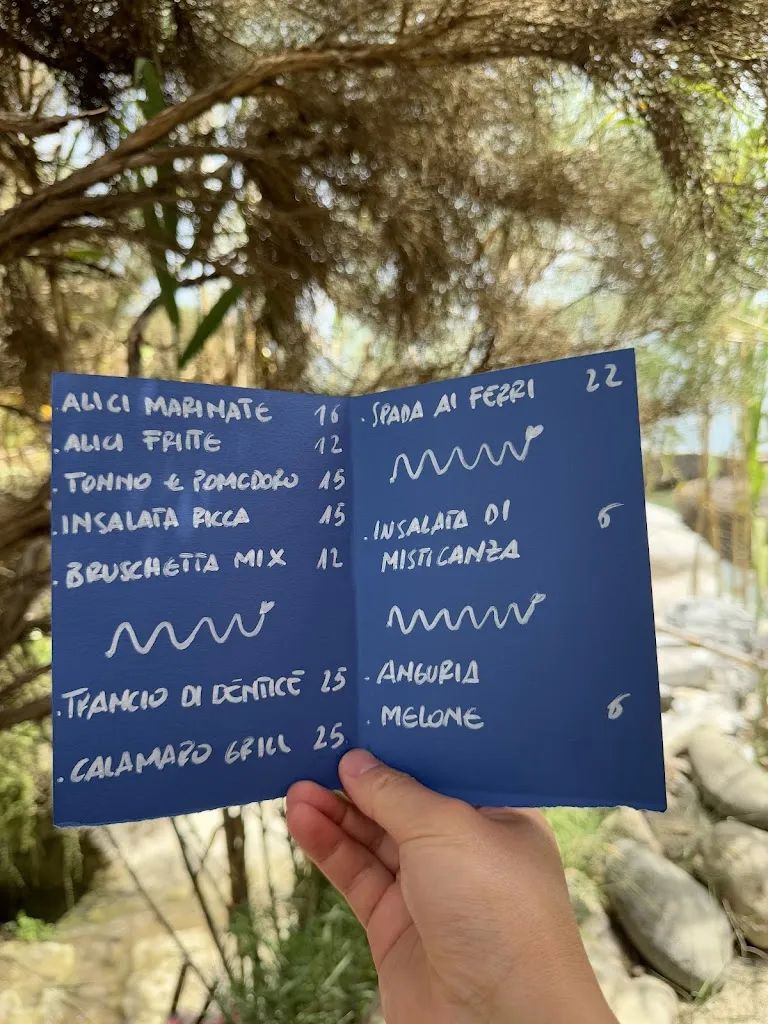 . ALICI MARINATE 16
. ALICI FRITTE 12
. TONNO E POMODORO 15
. INSALATA RICCA 15
. BRUSCHETTA MIX 12
. TRANCIO DI DENTICE 25
. CALAMARO GRILL 25
. SPADA AI FERRI 22
. INSALATA DI 6
MISTICANZA
. ANGURIA
. MELONE 6